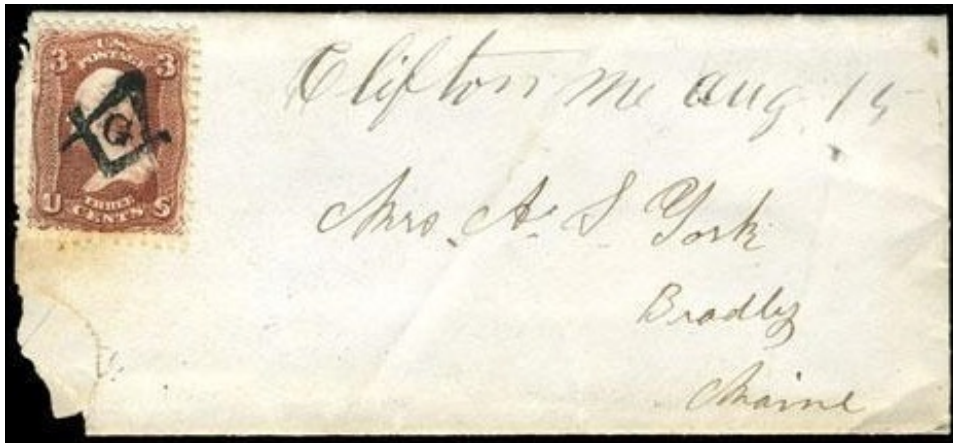 3 3
U.S.
POSTAGE
G
THREE
U CENTS S
Clifton Me Aug. 15
Mrs. A. S. York
Bradley
Maine